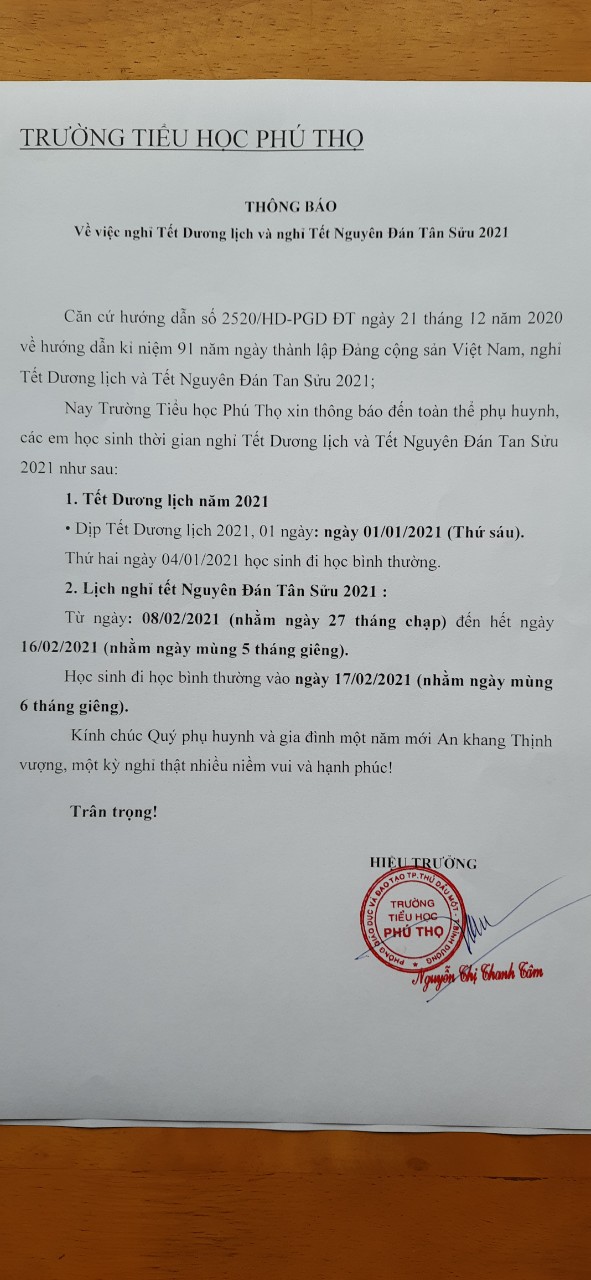 TRƯỜNG TIỂU HỌC PHÚ THỌ
THÔNG BÁO
Về việc nghỉ Tết Dương lịch và nghỉ Tết Nguyên Đán Tân Sửu 2021
Căn cứ hướng dẫn số 2520/HD-PGD ĐT ngày 21 tháng 12 năm 2020
về hướng dẫn kỉ niệm 91 năm ngày thành lập Đảng cộng sản Việt Nam, nghỉ
Tết Dương lịch và Tết Nguyên Đán Tan Sửu 2021;
Nay Trường Tiểu học Phú Thọ xin thông báo đến toàn thể phụ huynh,
các em học sinh thời gian nghỉ Tết Dương lịch và Tết Nguyên Đán Tan Sửu
2021 như sau:
1. Tết Dương lịch năm 2021
• Dịp Tết Dương lịch 2021, 01 ngày: ngày 01/01/2021 (Thứ sáu).
Thứ hai ngày 04/01/2021 học sinh đi học bình thường.
2. Lịch nghỉ tết Nguyên Đán Tân Sửu 2021 :
Từ ngày: 08/02/2021 (nhằm ngày 27 tháng chạp) đến hết ngày
16/02/2021 (nhằm ngày mùng 5 tháng giêng).
Học sinh đi học bình thường vào ngày 17/02/2021 (nhằm ngày mùng
6 tháng giêng).
Kính chúc Quý phụ huynh và gia đình một năm mới An khang Thịnh
vượng, một kỳ nghỉ thật nhiều niềm vui và hạnh phúc!
Trân trọng!
HIỆU TRƯỞNG
PHÒNG GIÁO DỤC VÀ ĐÀO TẠO TP.THỦ DẦU MỘT - T.BÌNH DƯƠNG
TRƯỜNG
TIỂU HỌC
PHÚ THỌ
Nguyễn Thị Thanh Tâm